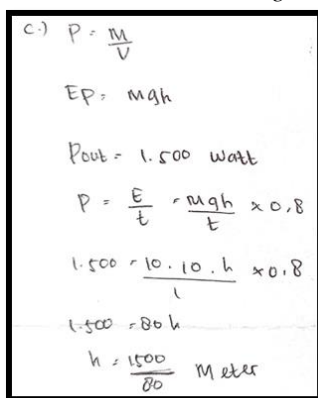 c.) P = M/V
EP = mgh
Pout = 1.500 watt
P = E/t = mgh/t x 0,8
1.500 = 10 . 10 . h/1 x 0,8
1.500 = 80 h
h = 1500/80 Meter